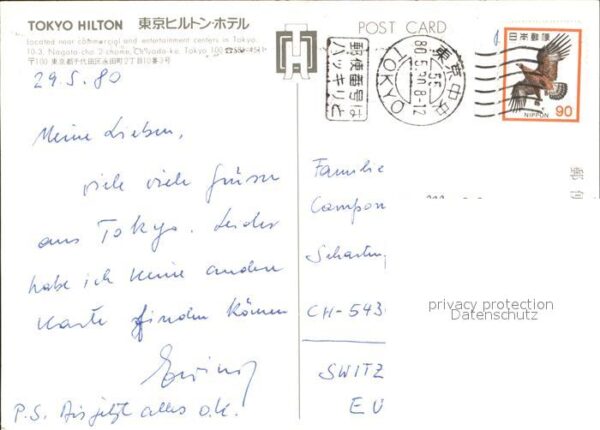 TOKYO HILTON 東京ヒルトン・ホテル
Located near commercial and entertainment centers in Tokyo.
10-3, Nagata-cho 2-chome, Chiyoda-ku, Tokyo 100
〒100 東京都千代田区永田町2丁目10番3号
POST CARD
29.5.80
Meine Lieben,
viele viele Grüsse
aus Tokyo. Leider
habe ich keine andere
Karte finden können
P.S. Bis jetzt alles o.k.
郵便番号は
ハッキリと
東京中央
55
80.5.30.8-12
TOKYO
日本郵便
NIPPON 90
郵便
Familie
Campon
CH-543
SWITZ
EU
privacy protection
Datenschutz